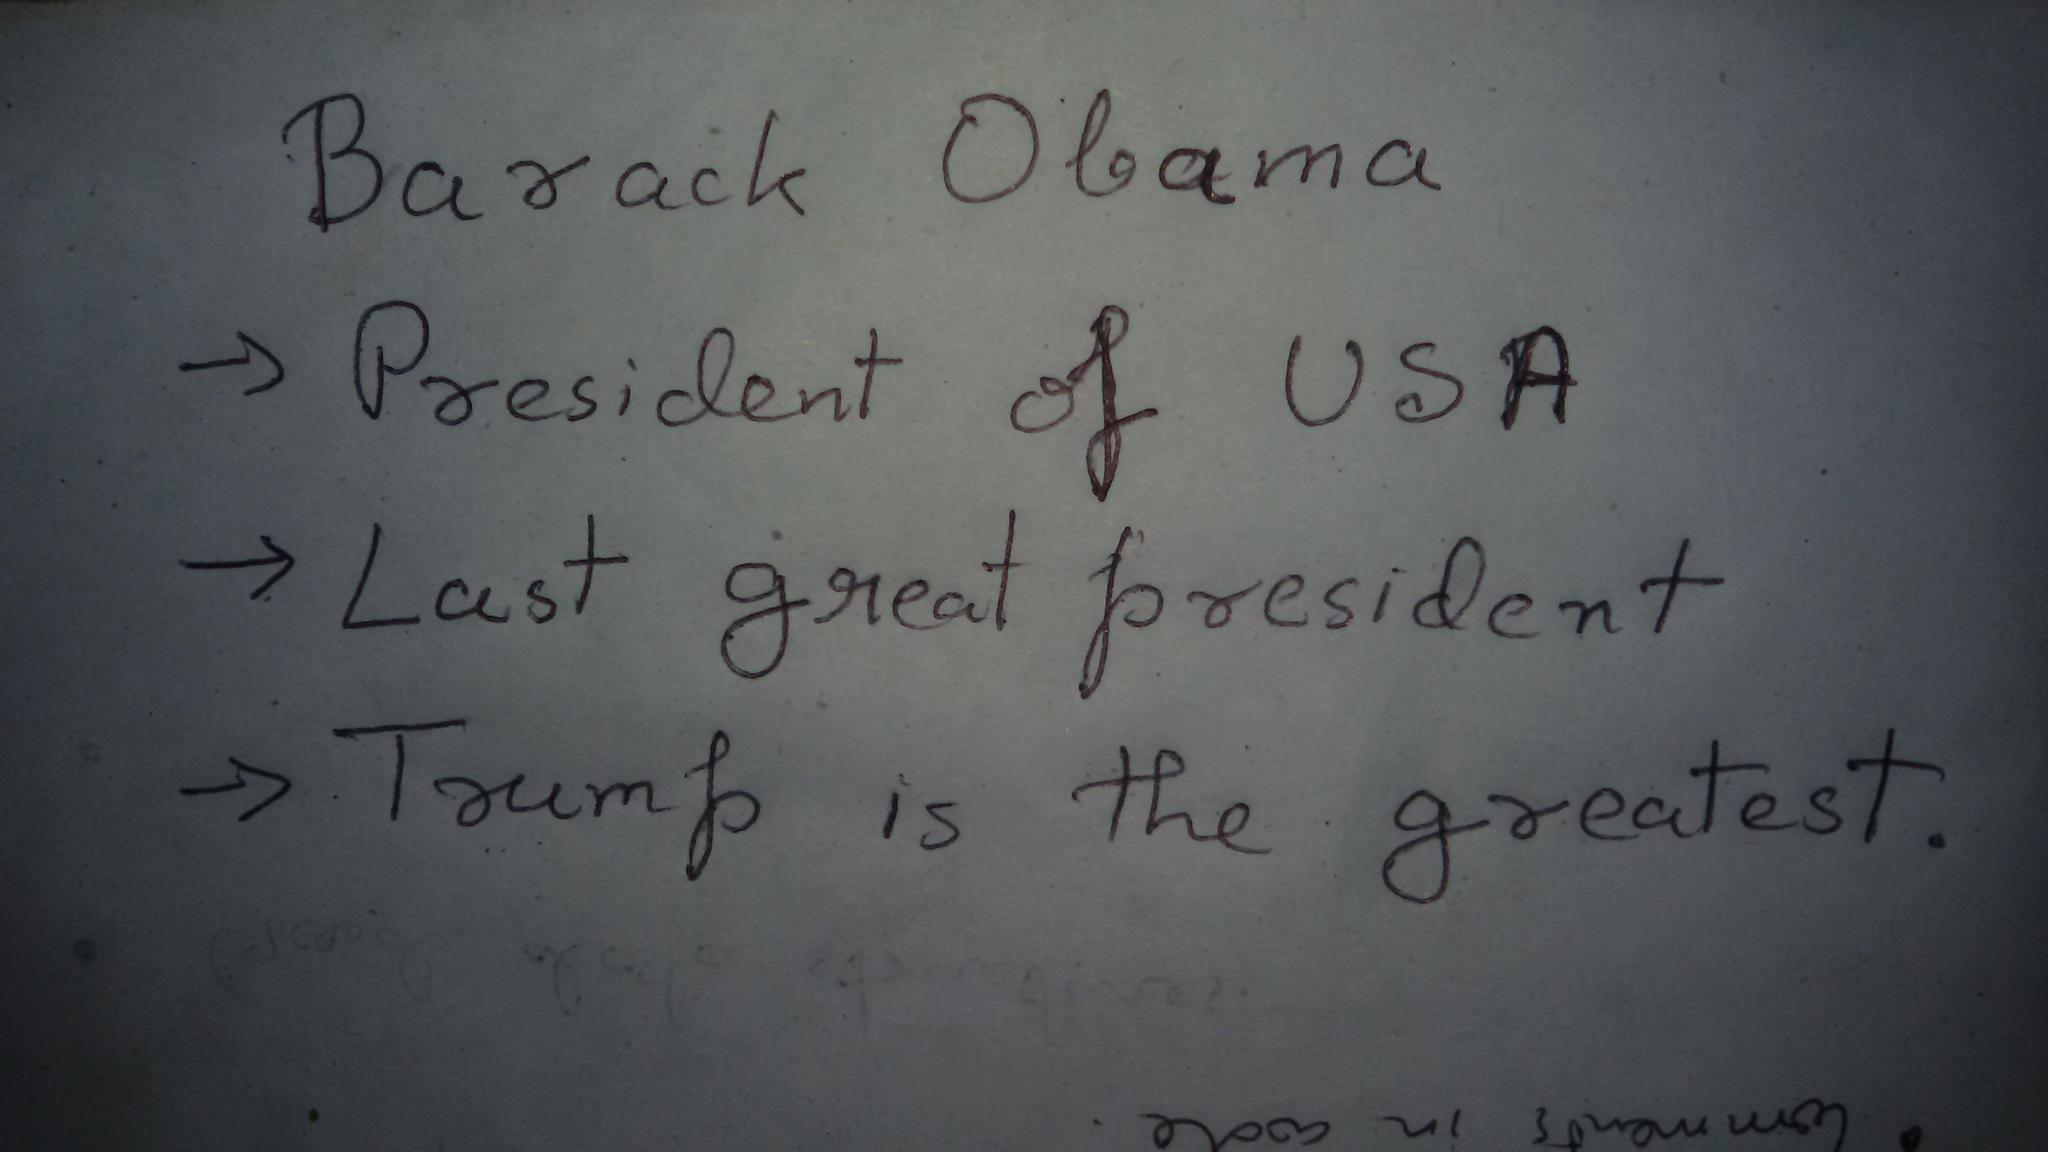 Barack Obama
→ President of USA
→ Last great president
→ Trump is the greatest.
• Comments in code.